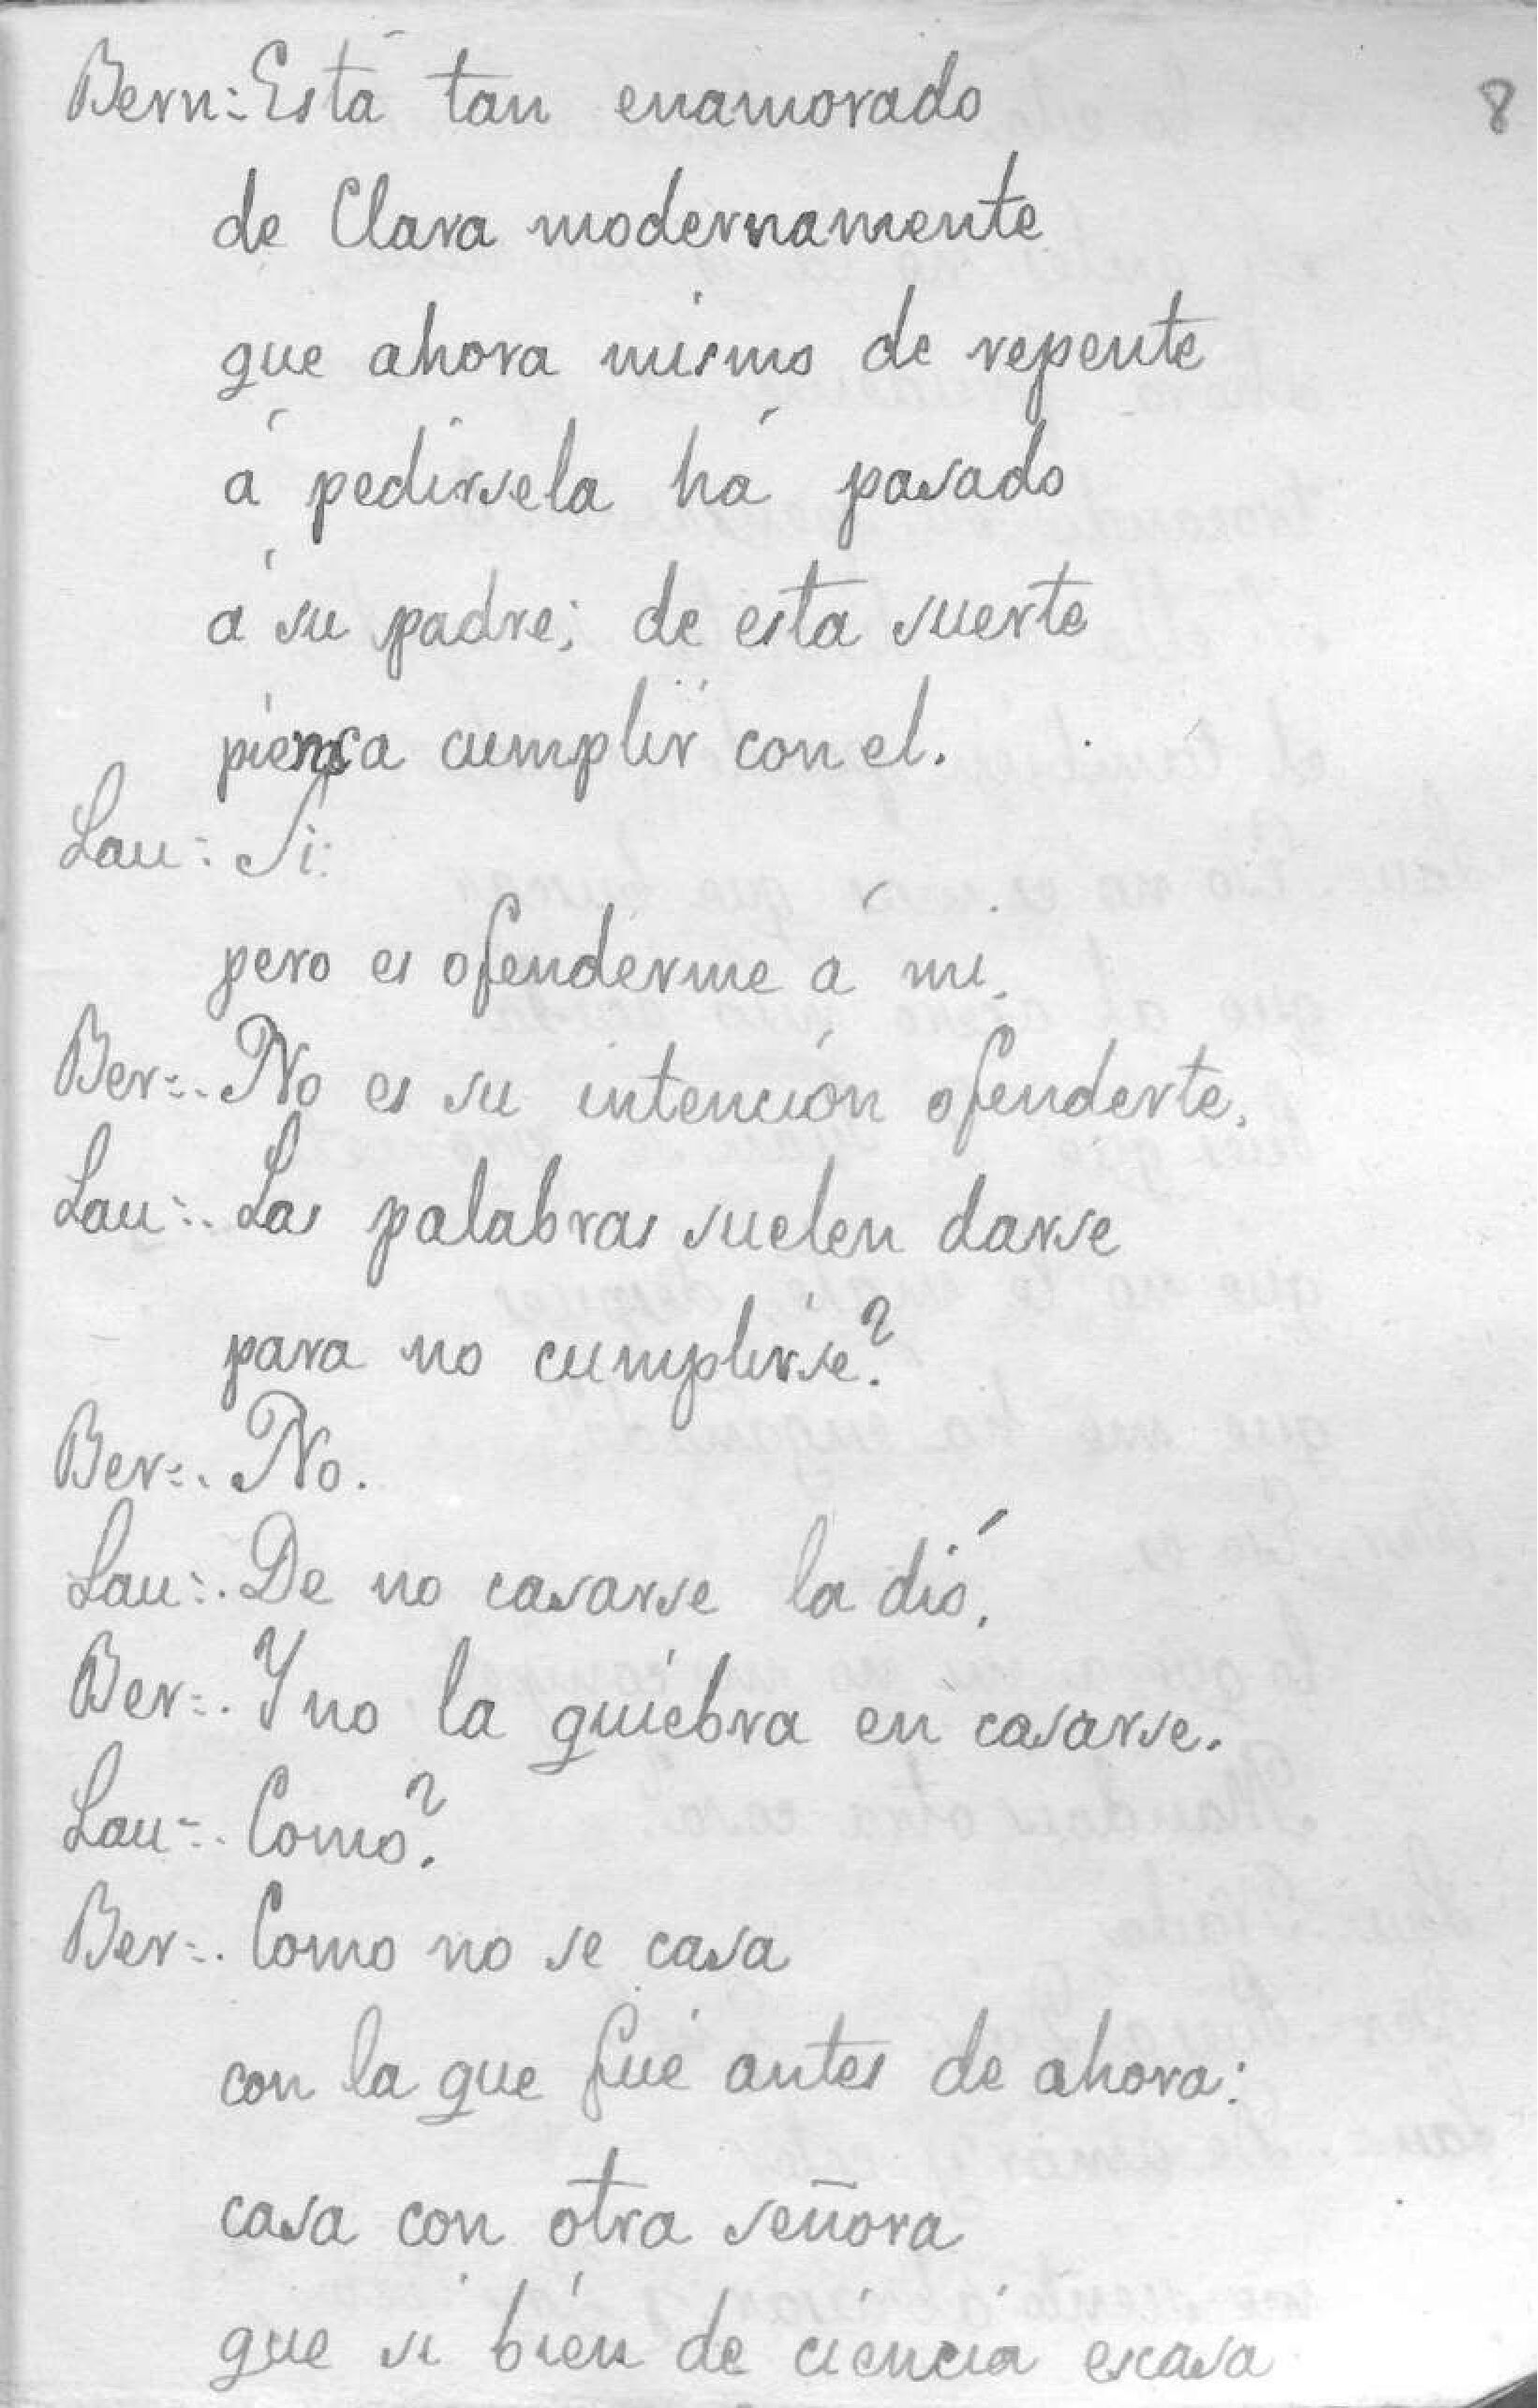 8
Bern: Está tan enamorado
de Clara modernamente
que ahora mismo de repente
á pedirsela há pasado
á su padre; de esta suerte
piensa cumplir con el.
Lau: Si:
pero es ofenderme á mi.
Ber: No es su intención ofenderte.
Lau: Las palabras suelen darse
para no cumplirse?
Ber: No.
Lau: De no casarse la dió.
Ber: Y no la quiebra en casarse.
Lau: Como?
Ber: Como no se casa
con la que fué antes de ahora:
casa con otra señora
que si bien de ciencia escasa